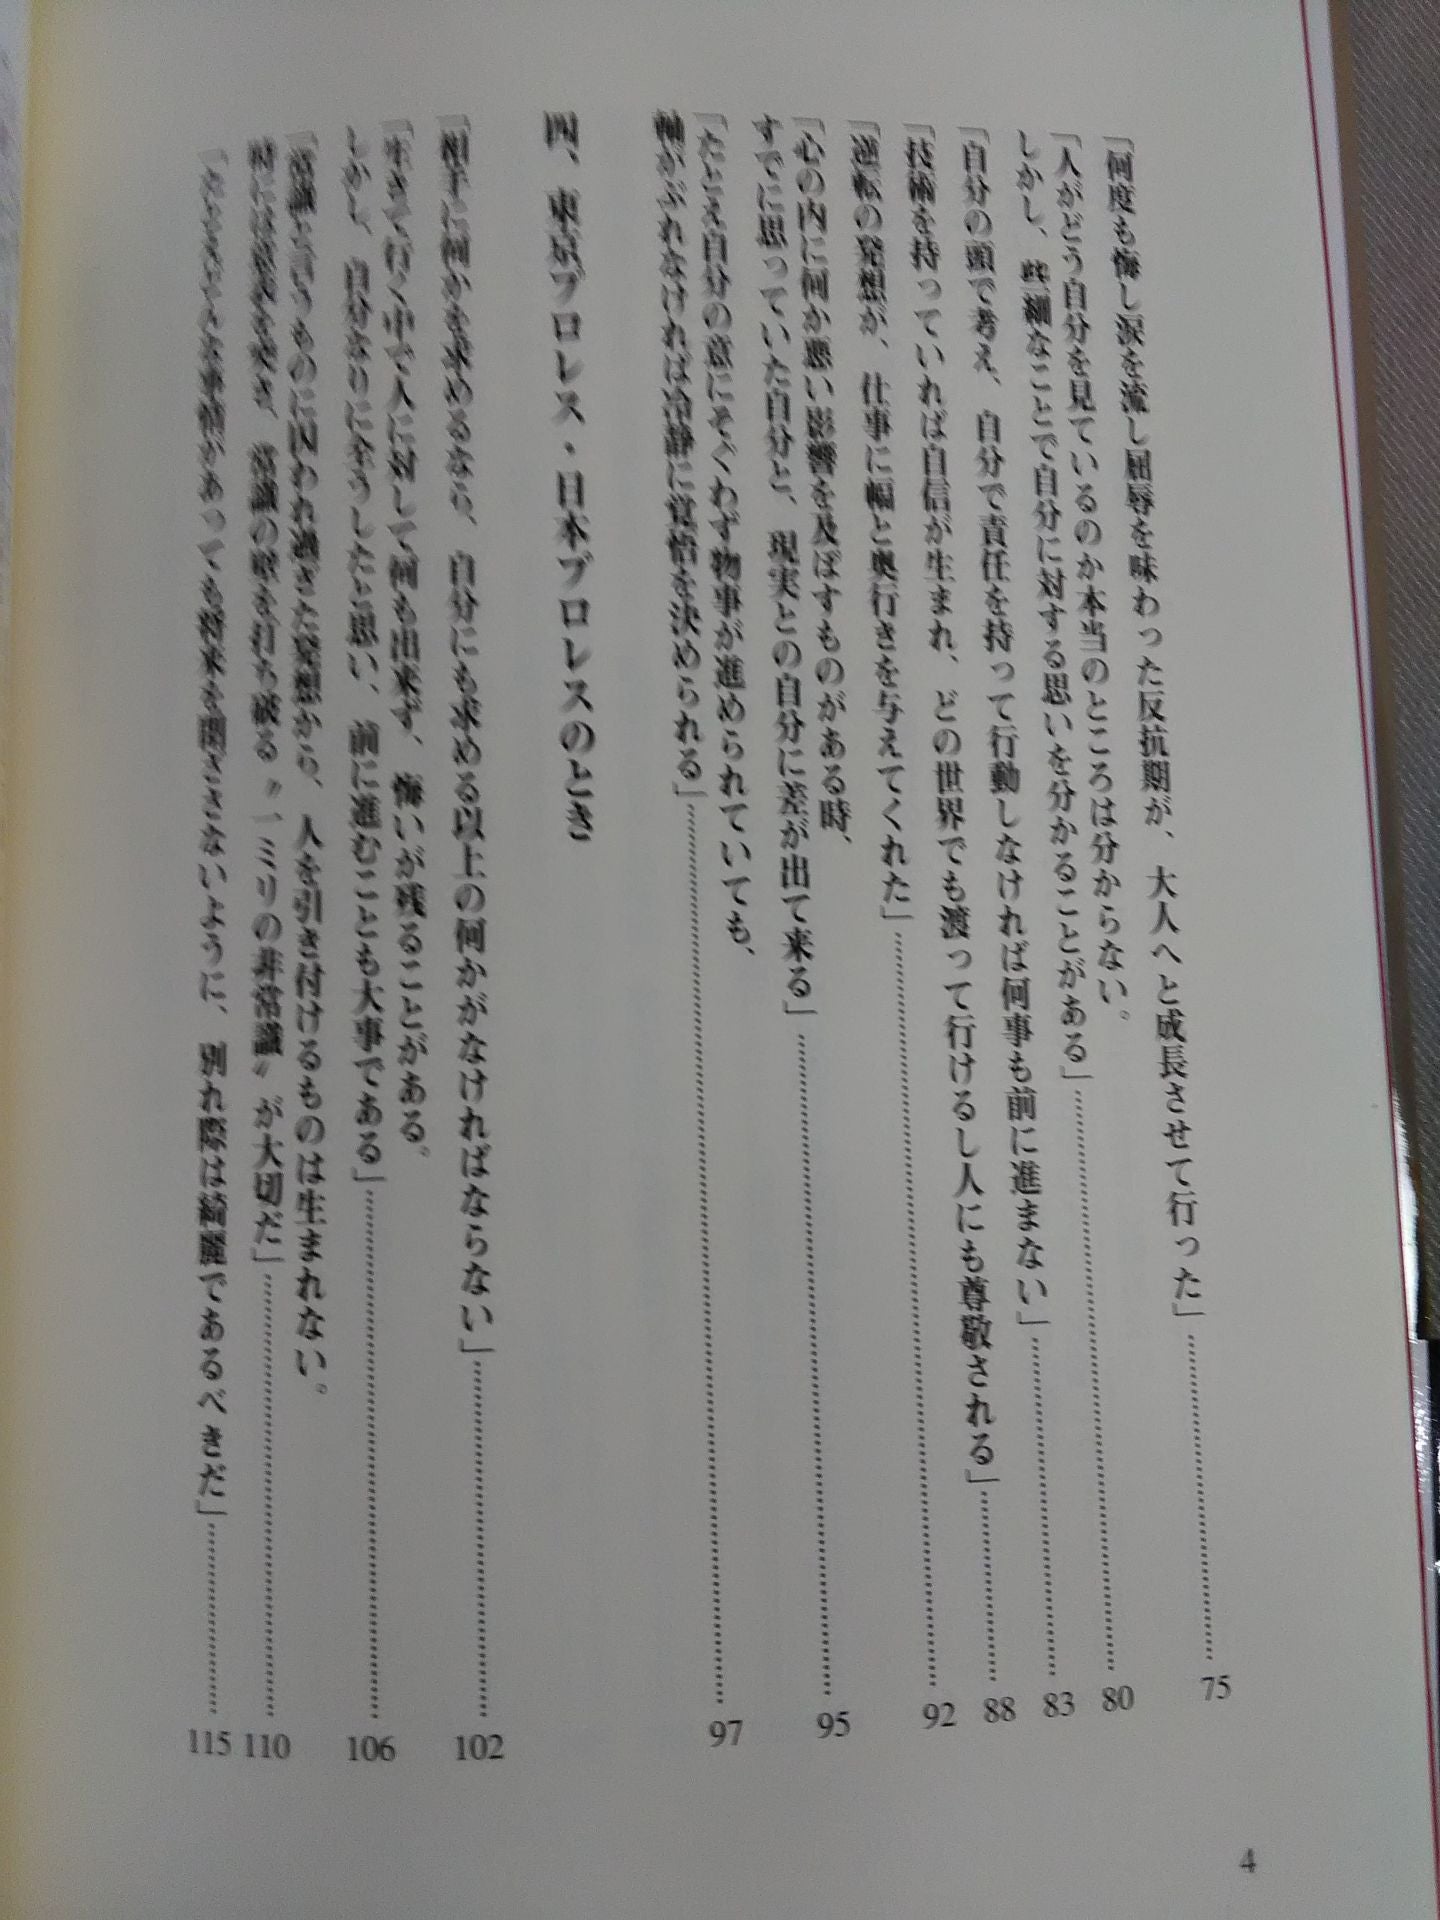 「何度も悔し涙を流し屈辱を味わった反抗期が、大人へと成長させて行った」…… 75
「人がどう自分を見ているのか本当のところは分からない。
しかし、些細なことで自分に対する思いを分かることがある」…… 80
「自分の頭で考え、自分で責任を持って行動しなければ何事も前に進まない」…… 83
「技術を持っていれば自信が生まれ、どの世界でも渡って行けるし人にも尊敬される」…… 88
「逆転の発想が、仕事に幅と奥行きを与えてくれた」…… 92
「心の内に何か悪い影響を及ぼすものがある時、
すでに思っていた自分と、現実との自分に差が出て来る」…… 95
「たとえ自分の意にそぐわず物事が進められていても、
軸がぶれなければ冷静に覚悟を決められる」…… 97
四、東京プロレス・日本プロレスのとき
「相手に何かを求めるなら、自分にも求める以上の何かがなければならない」…… 102
「生きて行く中で人に対して何も出来ず、悔いが残ることがある。
しかし、自分なりに全うしたと思い、前に進むことも大事である」…… 106
「常識と言うものに囚われ過ぎた発想から、人を引き付けるものは生まれない。
時には意表を突き、常識の壁を打ち破る〝一ミリの非常識〟が大切だ」…… 110
事情があっても将来を閉ざさないように、別れ際は綺麗であるべきだ」…… 115
4